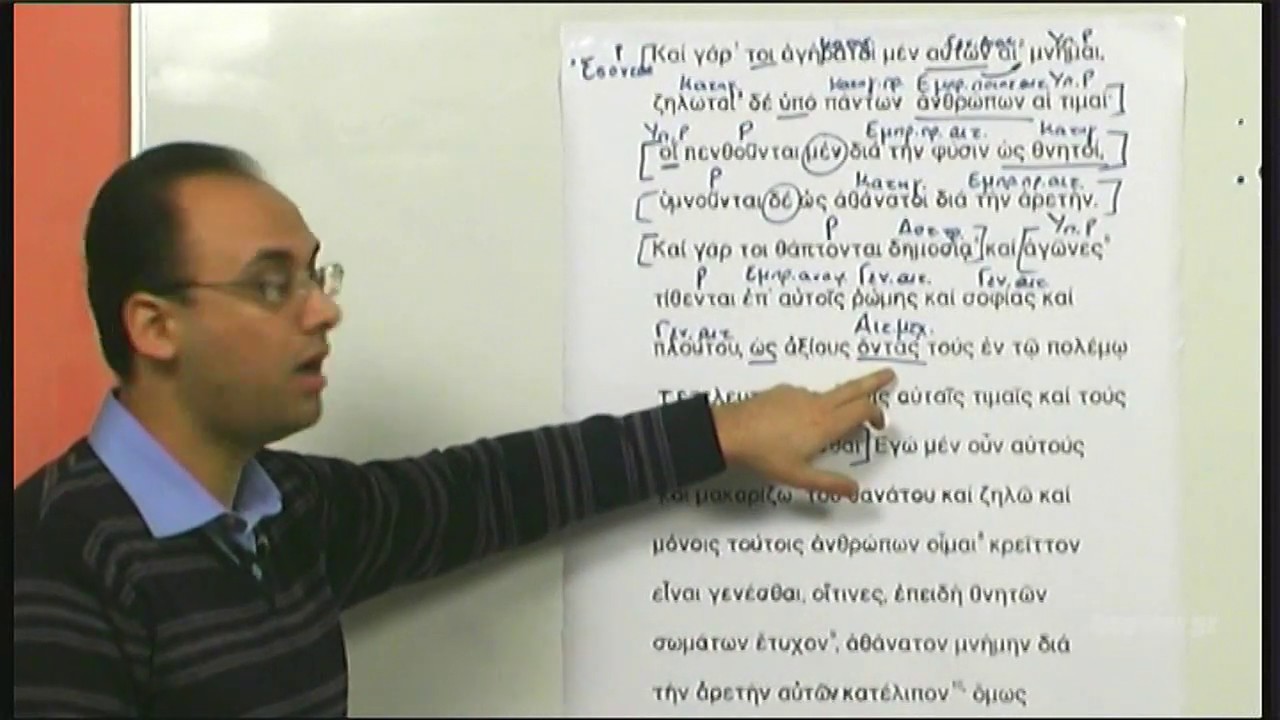 Υπ. Ρ
Ρ [Καί γάρ τοι ἀγήρατοι μέν αὐτῶν αἱ μνῆμαι,
Κατηγ. Κατηγ. Εμπρ. Υπ. Ρ
ζηλωταί δέ ὑπό πάντων ἀνθρώπων αἱ τιμαί]
Υπ. Ρ Ρ Εμπρ. πρ. αιτ. Κατηγ.
[οἵ πενθοῦνται μέν διά τήν φύσιν ὡς θνητοί,]
Ρ Κατηγ. Εμπρ. πρ. αιτ.
[ὑμνοῦνται δέ ὡς ἀθάνατοι διά τήν ἀρετήν.]
Ρ Δοτ. Υπ. Ρ
[Καί γάρ τοι θάπτονται δημοσίᾳ] καί [ἀγῶνες
Ρ Εμπρ. αναφ. Γεν. αιτ. Γεν. αιτ.
τίθενται ἐπ' αὐτοῖς ῥώμης καί σοφίας καί
Γεν. αιτ. Αιτ. μτχ.
πλούτου, ὡς ἀξίους ὄντας τούς ἐν τῷ πολέμῳ
αὐταῖς τιμαῖς καί τούς
Ἐγώ μέν οὖν αὐτούς
καί μακαρίζω τοῦ θανάτου καί ζηλῶ καί
μόνοις τούτοις ἀνθρώπων οἶμαι κρεῖττον
εἶναι γενέσθαι, οἵτινες, ἐπειδή θνητῶν
σωμάτων ἔτυχον, ἀθάνατον μνήμην διά
τήν ἀρετήν αὐτῶν κατέλιπον ὅμως